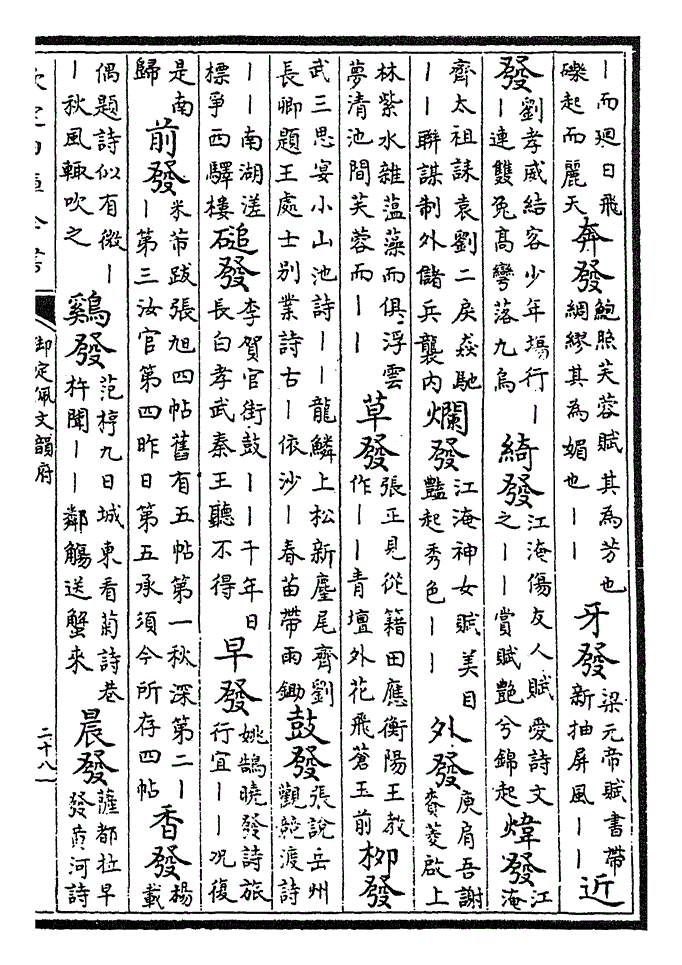 丨而廻日飛礫起而麗天奔發鮑照芙蓉賦其為芳也綢繆其為媚也丨丨牙發梁元帝賦書帶新抽屏風丨丨近
發劉孝威結客少年場行丨丨連雙兔高彎落九烏綺發江淹傷友人賦愛詩文之丨丨賞賦艷兮錦起煒發江淹
齊太祖誄袁劉二戾猋馳丨丨聯謀制外儲兵襲内爛發江淹神女賦美目豔起秀色丨丨外發庾肩吾謝賚菱啟上
林紫水雜蕰藻而俱浮雲夢清池間芙蓉而丨丨草發張正見從籍田應衡陽王教作丨丨青壇外花飛蒼玉前柳發
武三思宴小山池詩丨丨龍鱗上松新麈尾齊劉長卿題王處士别業詩古丨依沙丨春苗帶雨鋤鼓發張說岳州觀競渡詩
丨丨南湖漾標爭西驛樓磓發李賀官街鼓丨丨千年日長白孝武秦王聽不得早發姚鵠曉發詩旅行宜丨丨况復
是南歸前發米芾跋張旭四帖舊有五帖第一秋深第二丨丨第三汝官第四昨日第五承須今所存四帖香發楊載
偶題詩似有微丨丨秋風輒吹之鷄發范梈九日城東看菊詩巷杵聞丨丨鄰觴送蟹來晨發薩都拉早發黄河詩
欽定四庫全書
御定佩文韻府
二十八